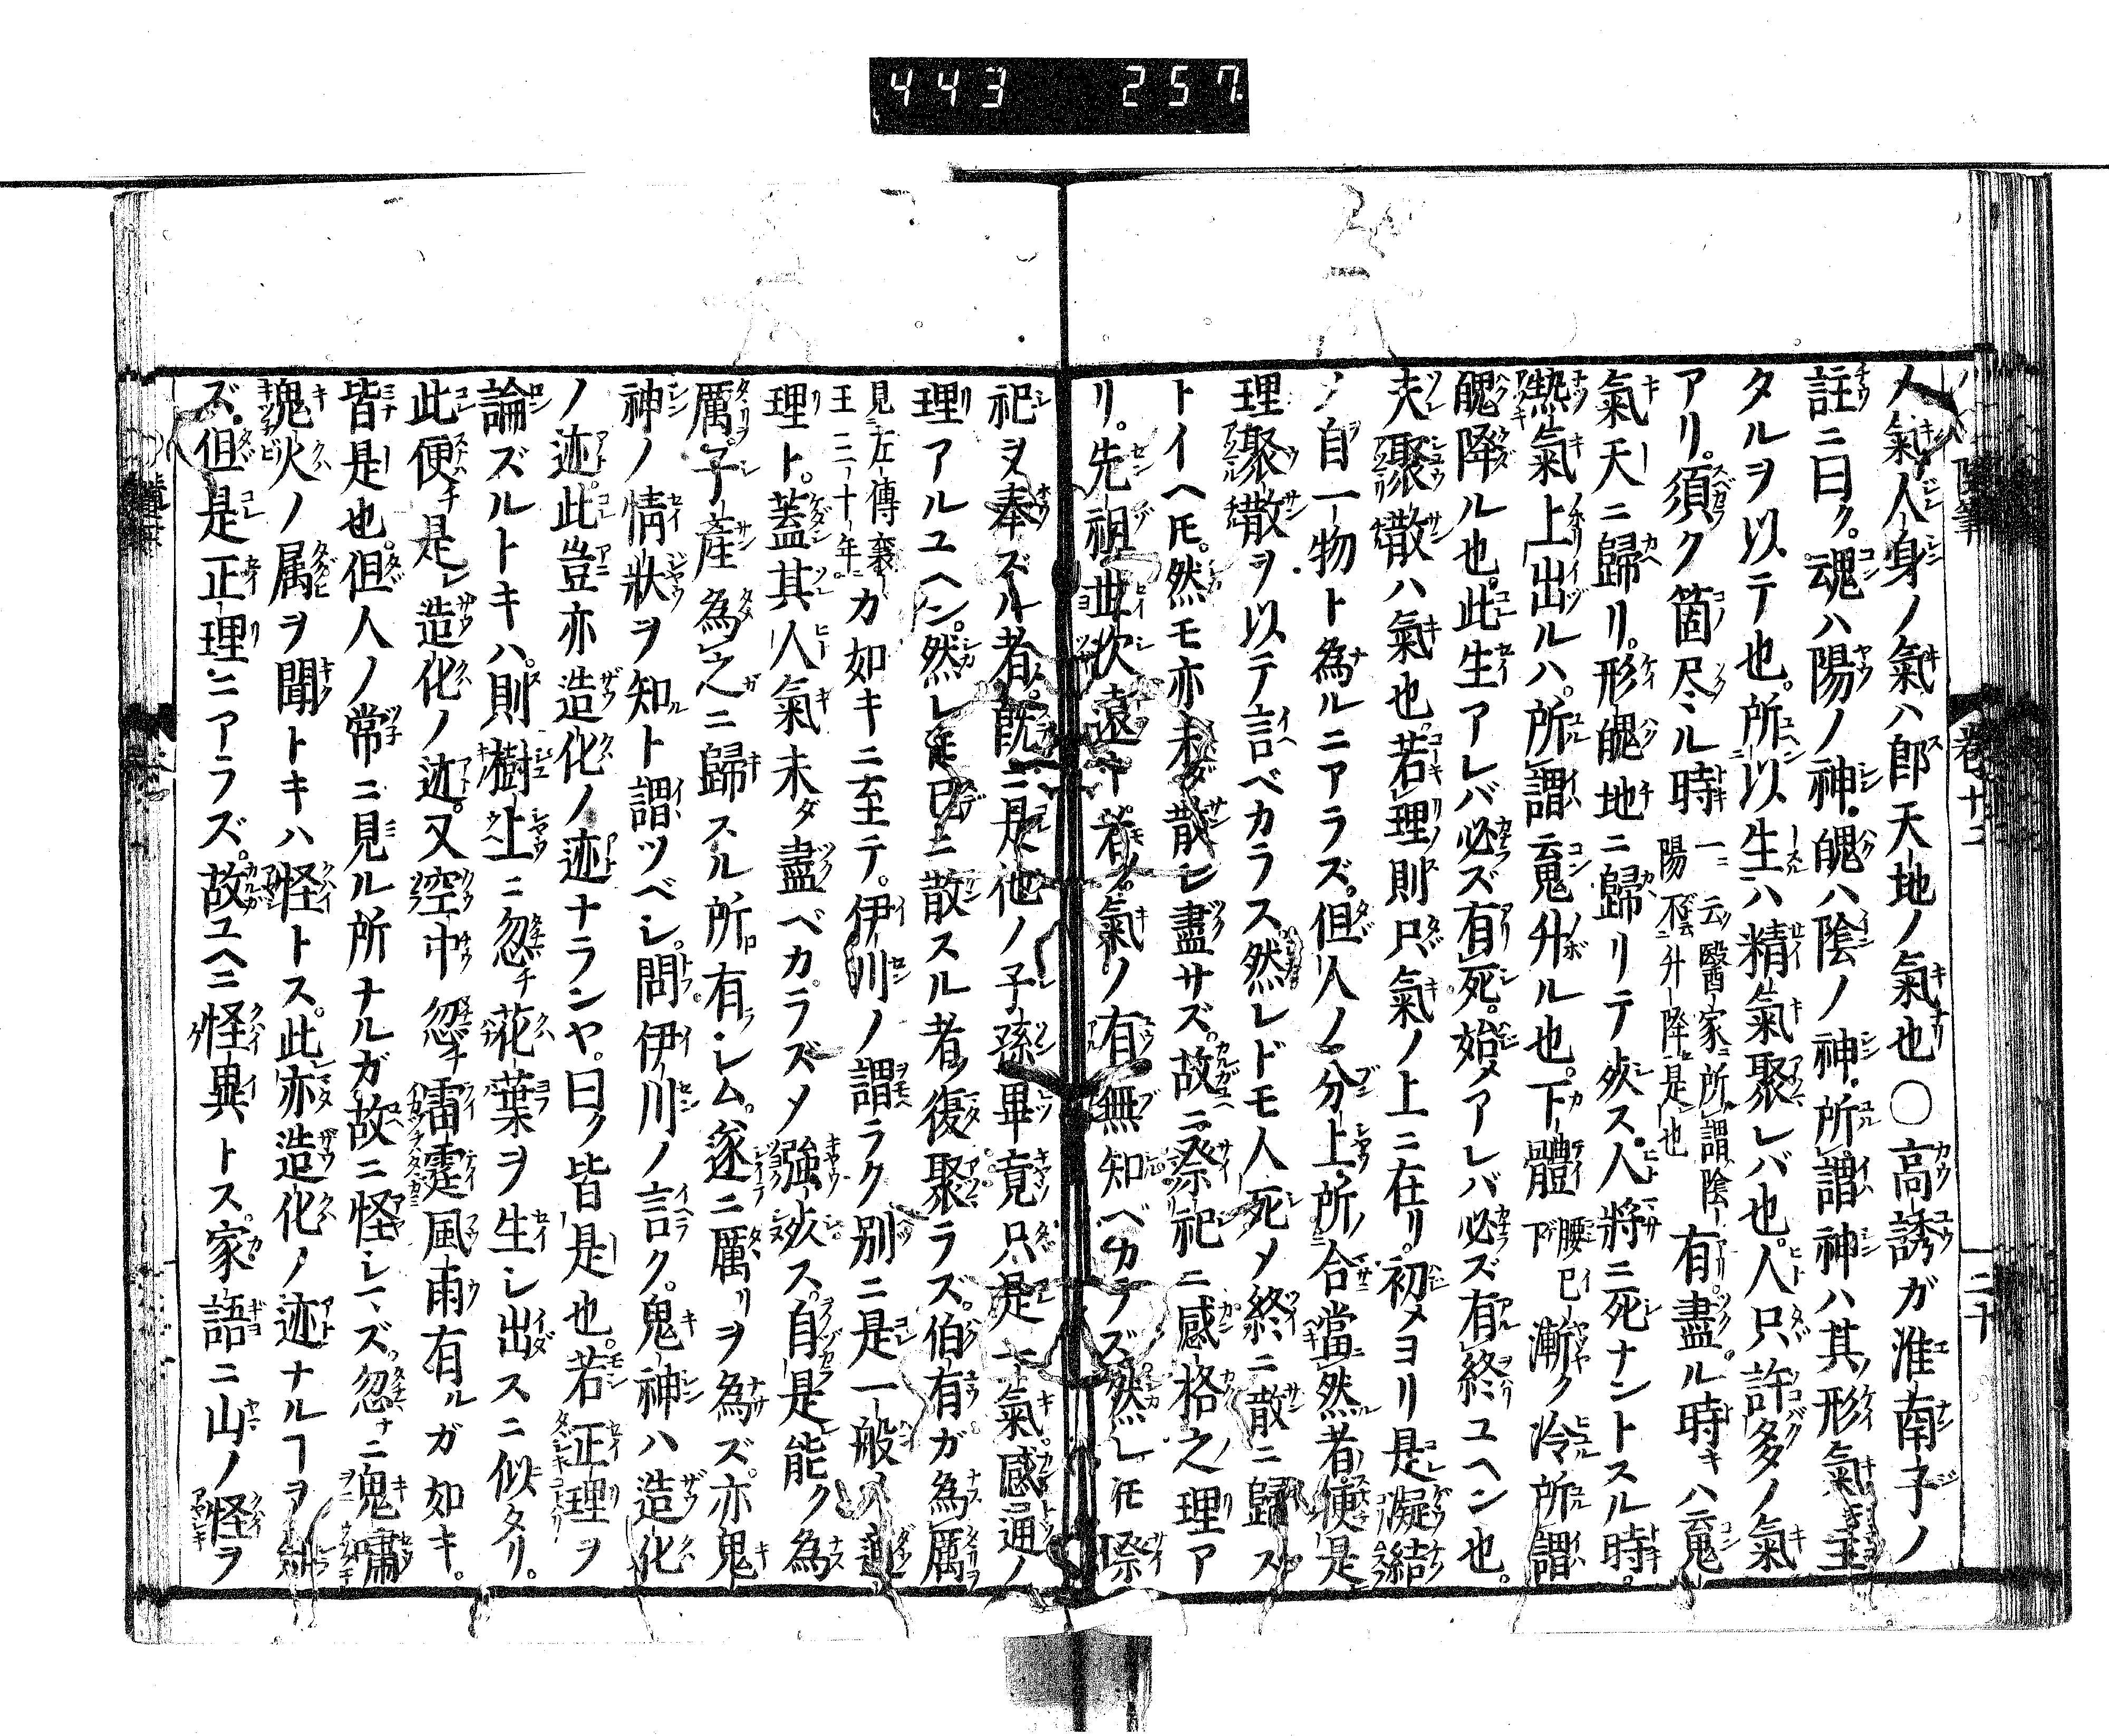 443 257.
人ノ氣ノ人身ノ氣ハ即天地ノ氣也○高誘ガ淮南子ノ
註ニ曰ク。魂ハ陽ノ神。魄ハ陰ノ神。所謂神ハ其ノ形氣ニ主
タルヲ以テ也。所以生ハ精氣聚レバ也。人只許多ノ氣
アリ。須ク箇ノ尽ル時 一ニ云醫家ニ所謂陰陽不升降是也 有盡ル時キハ䰟
氣天ニ歸リ。形魄地ニ歸リテ死ス。人將ニ死ナントスル時。
熱氣上出ルハ。所謂䰟升ル也。下體 腰已下 漸ク冷所謂
魄降ル也。此生アレバ必ズ有死。始アレバ必ズ有終ユヘン也。
夫聚散ハ氣也。若理則只氣ノ上ニ在リ。初メヨリ是凝結
メ自一物ト為ルニアラズ。但人ノ分上所合當然者便是
理聚散ヲ以テ言ベカラス然レドモ人死メ終ニ散ニ歸ス
トイヘ𪜈。然モ亦未ダ散シ盡サズ。故ニ祭祀ニ感格之理ア
リ。先祖世次遠キ者ノ氣ノ有無知ベカラズ。然レ𪜈祭
祀ヲ奉ズル者。既ニ是他ノ子孫畢竟只是一氣感通ノ
理アルユヘン。然レ𪜈已ニ散スル者復聚ラズ。伯有ガ為厲
見左傳襄王三十年。カ如キニ至テ。伊川ノ謂ラク別ニ是一般ノ道
理ト。蓋其人氣未ダ盡ベカラズメ強死ス。自是能ク為
厲。子產為之ニ歸スル所有ラシム。遂ニ厲リヲ為ズ。亦鬼
神ノ情狀ヲ知ト謂ツベシ。問伊川ノ言ク。鬼神ハ造化
ノ迹。此豈亦造化ノ迹ナランヤ。曰ク皆是也。若正理ヲ
論ズルトキハ。則樹上ニ忽チ花葉ヲ生シ出スニ似タリ。
此便チ是レ造化ノ迹。又空中忽チ雷霆風雨有ルガ如キ。
皆是也。但人ノ常ニ見ル所ナルガ故ニ怪シマズ。忽チニ鬼嘯
鬼火ノ属ヲ聞トキハ怪トス。此亦造化ノ迹ナルヿヲ知ラ
ズ。但是正理ニアラズ。故ユヘニ怪異トス。家語ニ山ノ怪ヲ
巻十二
二十